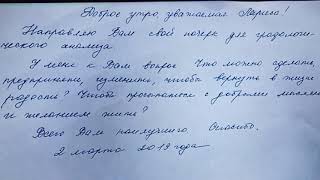 Доброе утро, уважаемая Лариса!
Направляю Вам свой почерк для графологи-
ческого анализа.
У меня к Вам вопрос. Что можно сделать,
предпринять, изменить, чтобы вернуть в жизнь
радость? Чтобы просыпаться с добрыми мыслями
и желанием жить?
Всего Вам наилучшего. Спасибо.
2 марта 2019 года